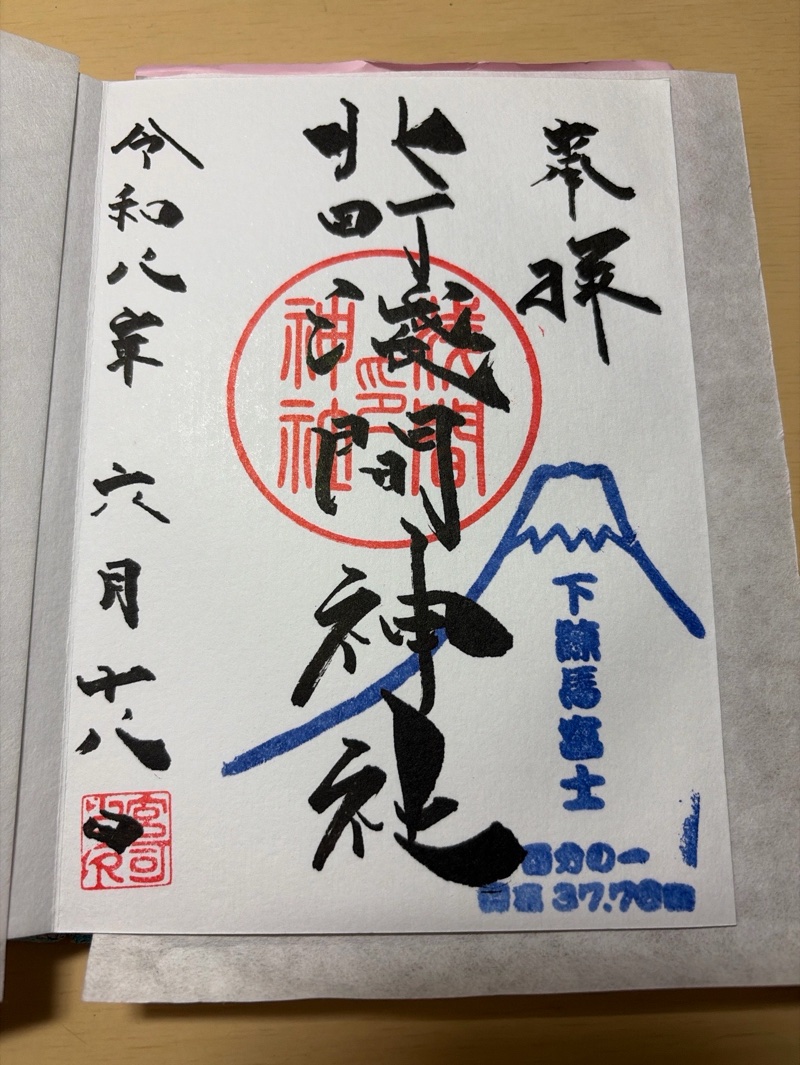 奉拝
北町淺間神社
淺間
神社
印
下練馬富士
百分の一
標高 37.76m
令和八年 六月十八日
宮司之印